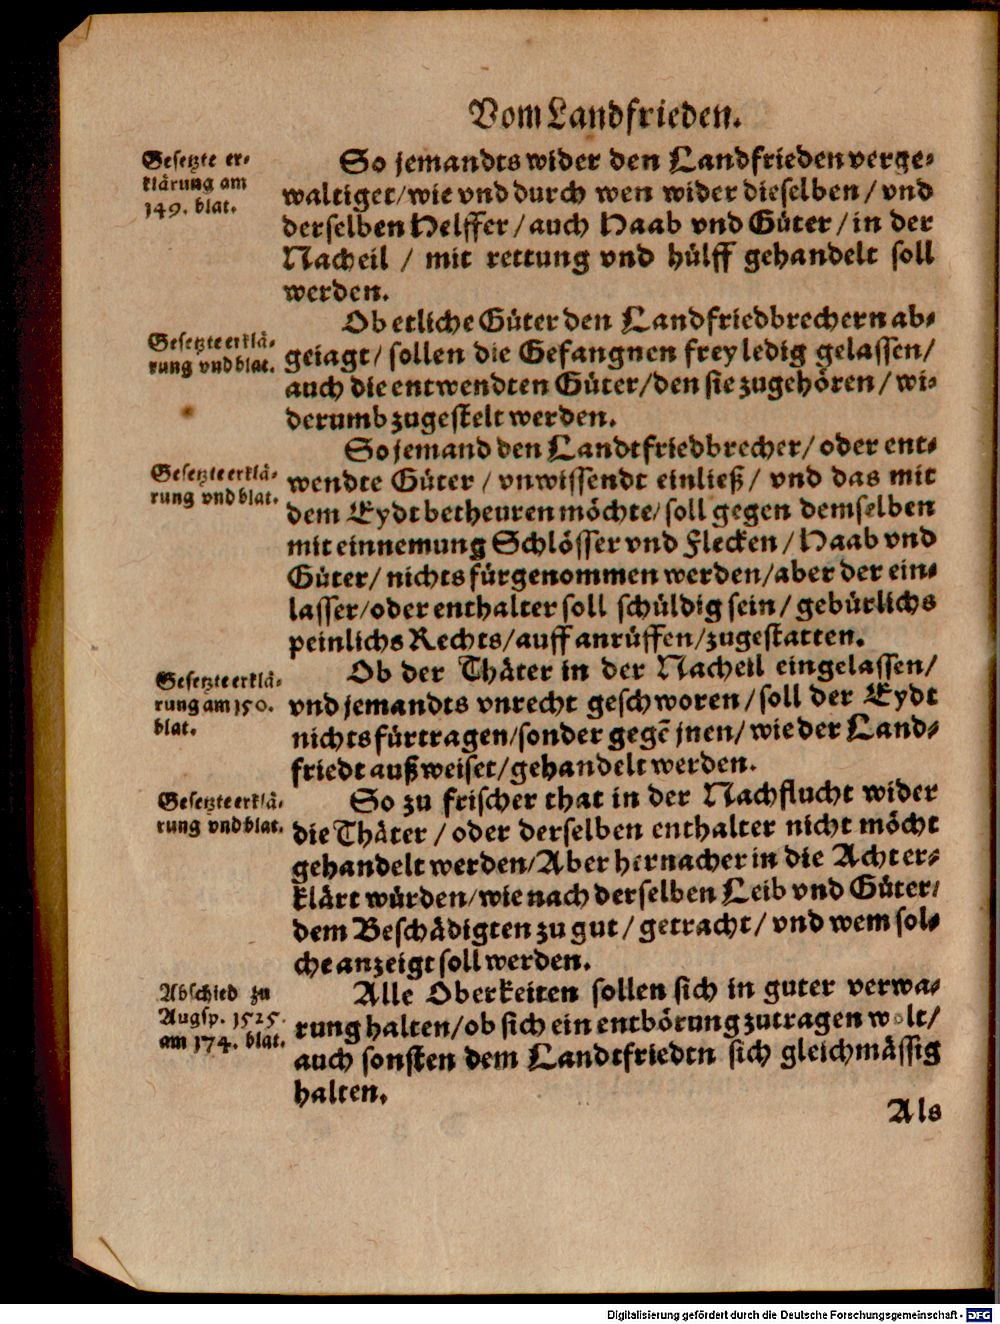 Vom Landfrieden.
Gesetzte er-
klärung am
149. blat.
So jemandts wider den Landfrieden verge-
waltiget/wie vnd durch wen wider dieselben/vnd
derselben Helffer/auch Haab vnd Güter/in der
Nacheil / mit rettung vnd hülff gehandelt soll
werden.
Gesetzte erklä-
rung vnd blat.
Ob etliche Güter den Landfriedbrechern ab-
geiagt/ sollen die Gefangnen frey ledig gelassen/
auch die entwendten Güter/den sie zugehören/wi-
derumb zugestelt werden.
Gesetzte erklä-
rung vnd blat.
So jemand den Landtfriedbrecher/oder ent-
wendte Güter / vnwissendt einließ/ vnd das mit
dem Eydt betheuren möchte/soll gegen demselben
mit einnemung Schlösser vnd Flecken/Haab vnd
Güter/nichts fürgenommen werden/aber der ein-
lasser/oder enthalter soll schüldig sein/gebürlichs
peinlichs Rechts/auff anrüffen/zugestatten.
Gesetzte erklä-
rung am 150.
blat.
Ob der Thäter in der Nacheil eingelassen/
vnd jemandts vnrecht geschworen/soll der Eydt
nichts fürtragen/sonder gegē jnen/wie der Land-
friedt außweiset/gehandelt werden.
Gesetzte erklä-
rung vnd blat.
So zu frischer that in der Nachflucht wider
die Thäter / oder derselben enthalter nicht möcht
gehandelt werden/Aber hernacher in die Acht er-
klärt würden/wie nach derselben Leib vnd Güter/
dem Beschädigten zu gut/getracht/vnd wem sol-
che anzeigt soll werden.
Abschied zu
Augsp. 1525.
am 174. blat.
Alle Oberkeiten sollen sich in guter verwa-
rung halten/ob sich ein entbörung zutragen wolt/
auch sonsten dem Landtfriedtn sich gleichmässig
halten.
Als
Digitalisierung gefördert durch die Deutsche Forschungsgemeinschaft - DFG